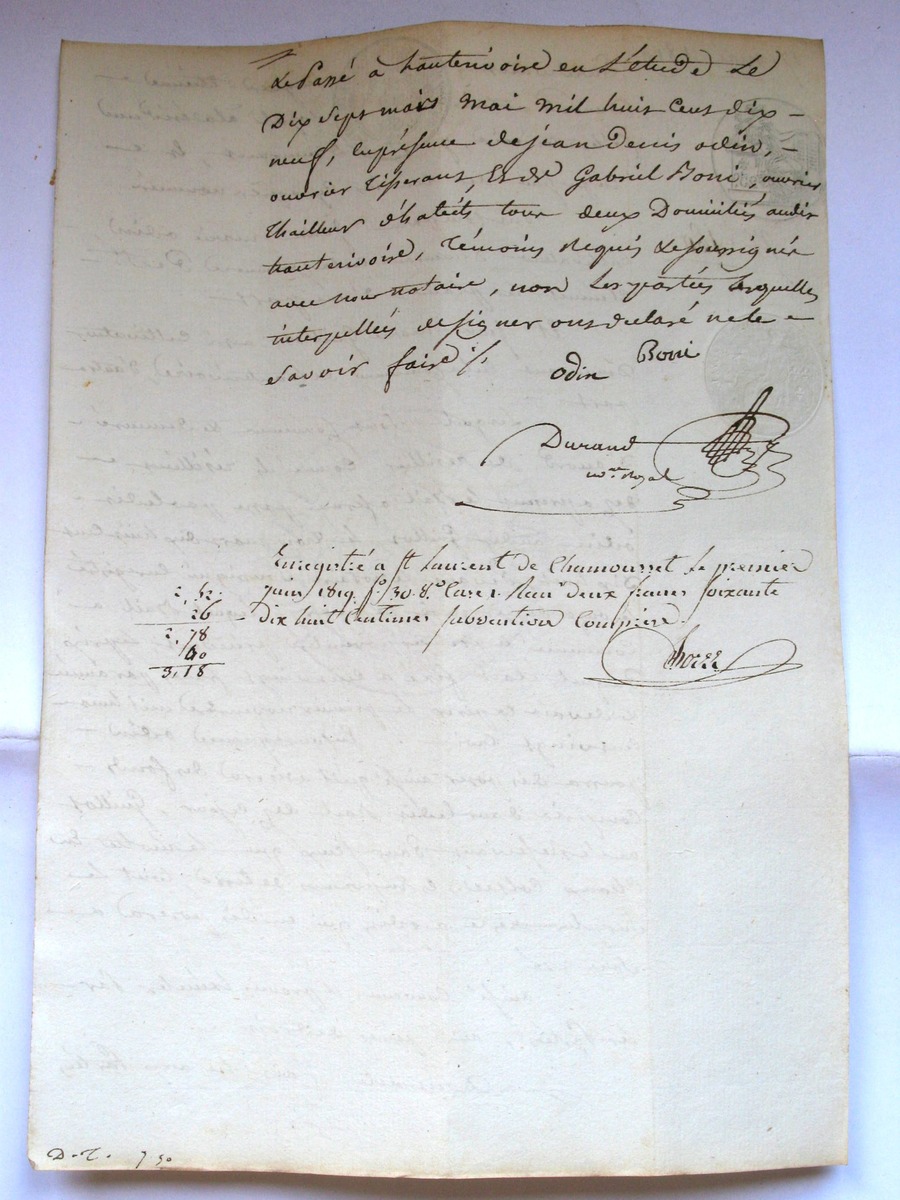 Le Passé à hauterivoire en L'étude Le
Dix Sept mars mai mil huit Cent dix -
neuf, En présence de jean Denis odin, -
ouvrier Tisserant, Et de Gabriel Boni, ouvrier
thailleur d'habits tous deux Domiciliés audit
hauterivoire, Témoins Requis Le soussignés
avec nous notaire, non Les parties lesquelles
interpellées de signer ont déclaré ne le -
Savoir faire ./.
odin Boni
Durand
no.re Royal
Enregistré a St Laurent de Chamousset Le premier
juin 1819. f.o 30. v.o Case 1. deux francs soixante
- Dix huit Centimes subvention Comprise.
2, 52.
26
2, 78
40
3, 18
D. T. 7 50